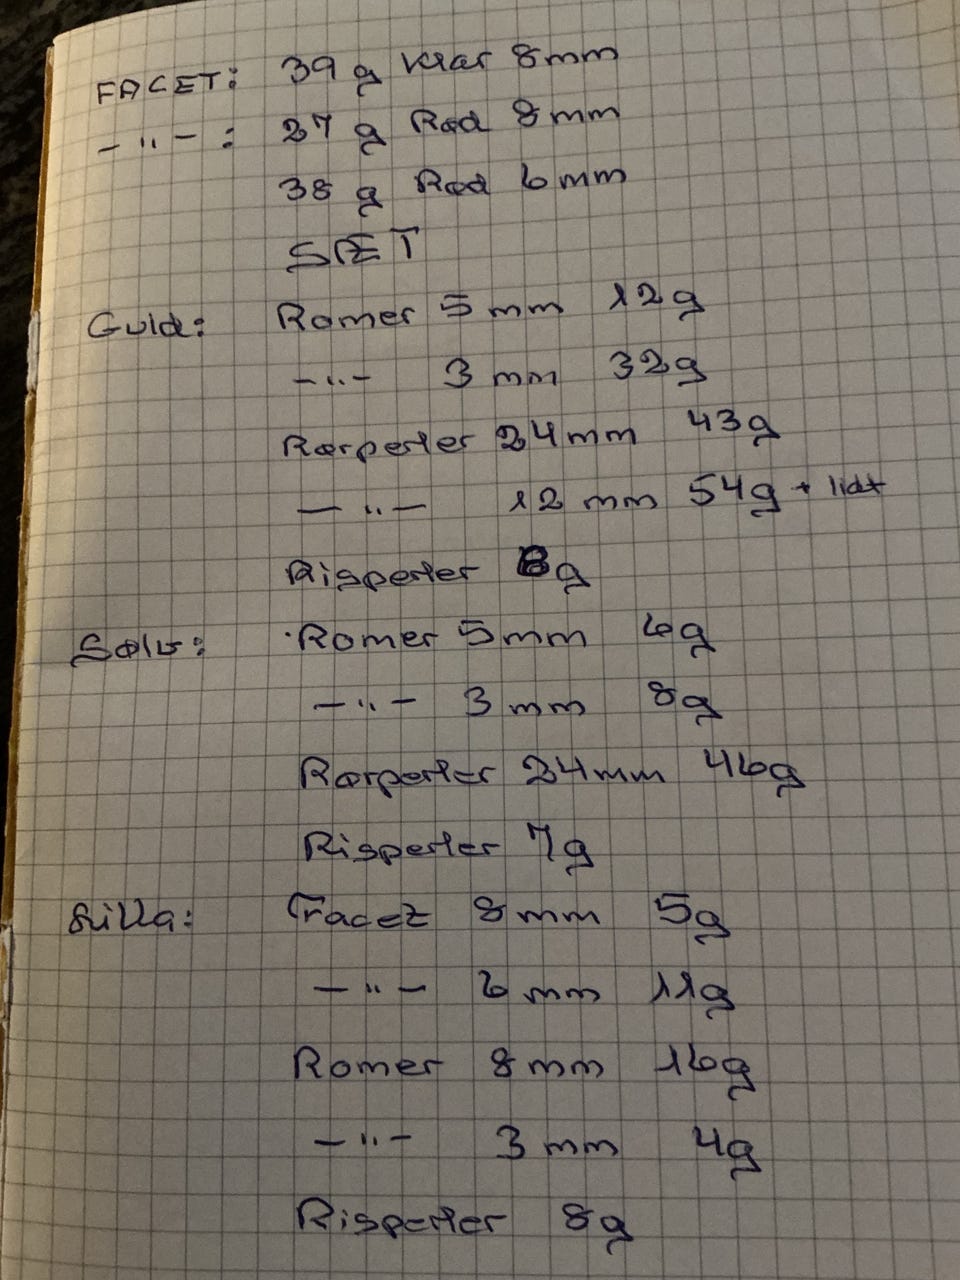 FACET: 39 g Klar 8 mm
- " - : 27 g Rød 8 mm
38 g Rød 6 mm
SÆT
Guld: Romer 5 mm 12g
- " - 3 mm 32g
Rørperler 24 mm 43g
- " - 12 mm 54g + lidt
Risperler 8g
Sølv: Romer 5 mm 6g
- " - 3 mm 8g
Rørperler 24 mm 46g
Risperler 7g
Lilla: Facet 8 mm 5g
- " - 6 mm 11g
Romer 8 mm 16g
- " - 3 mm 4g
Risperler 8g